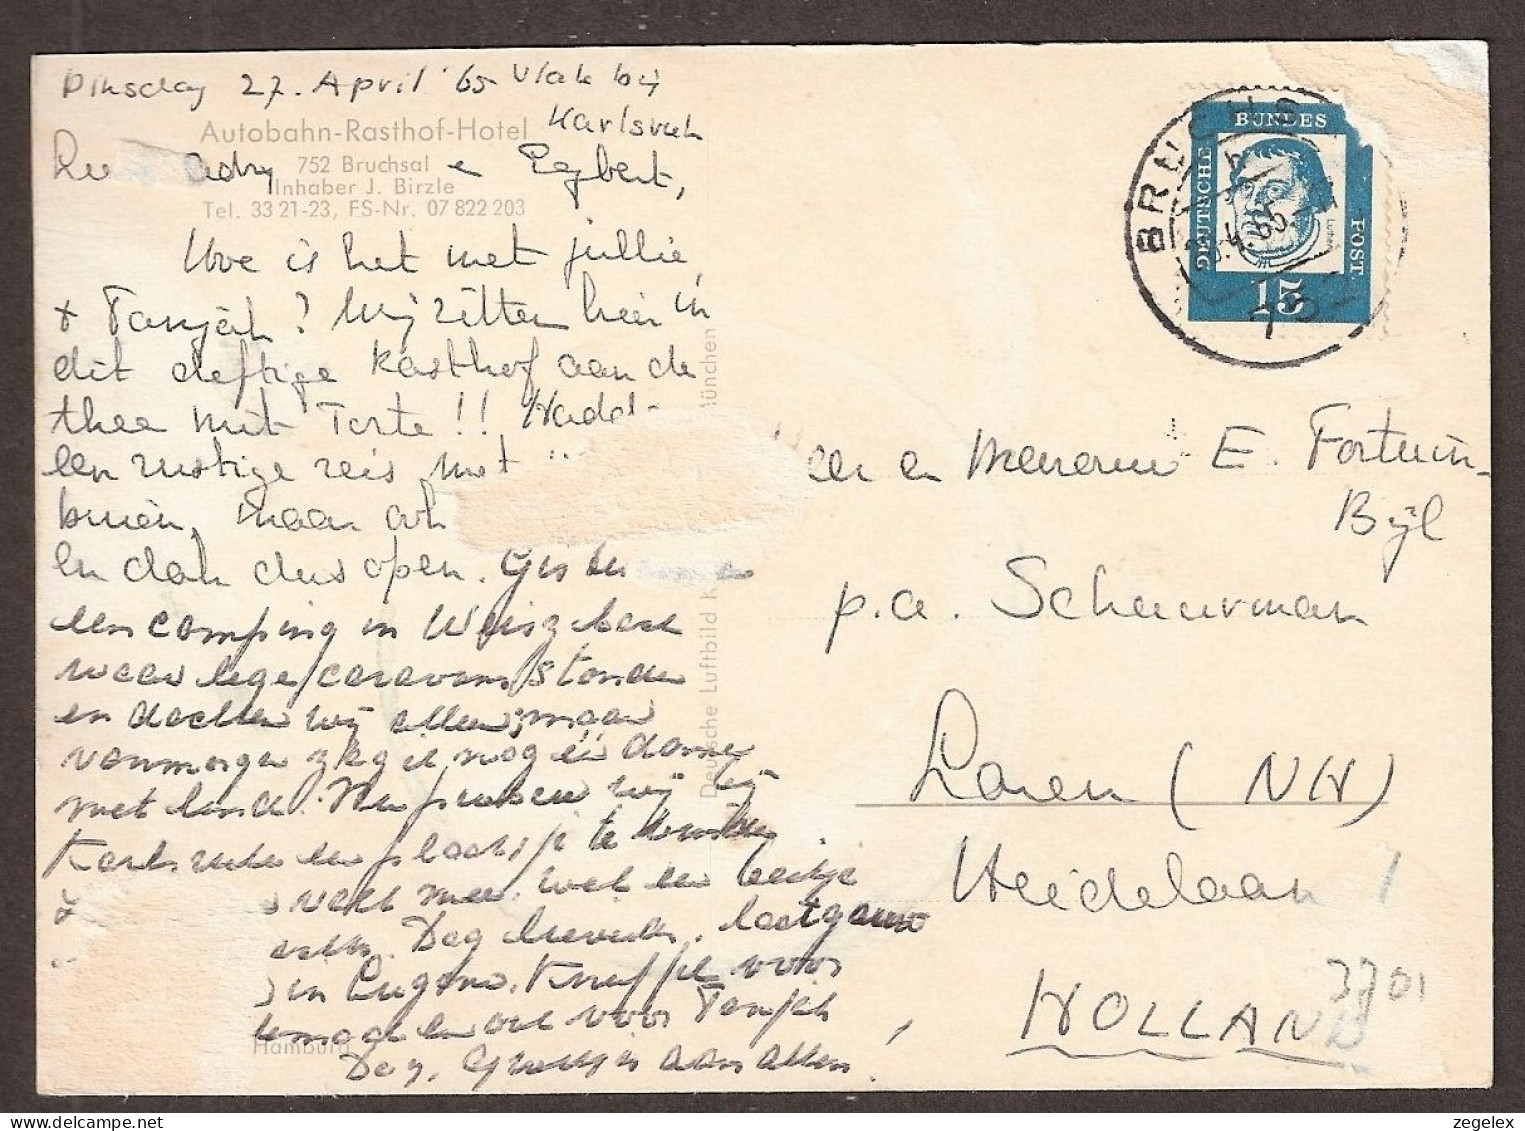 Dinsdag 27. April '65 Vlak bij
Karlsruh
Autobahn-Rasthof-Hotel
752 Bruchsal
Inhaber J. Birzle
Tel. 33 21-23, FS-Nr. 07 822 203
Adry e Egbert,
Hoe is het met jullie,
+ Tanjah? Wij zitten hier in
dit deftige Rasthof aan de
thee mit Torte!! Hadd
een rustige reis met
buien, maar
en dak dus open. Giste
een camping in
waar lege caravans stonden
en dachten wij alleen; maar
vanmorgen zag ik nog één dame
met hond. Nu proberen wij bij
Karlsruhe een plaatsje te vinden
& veel meer. wel een beetje
Dag lieverds,
in Lugano. Knuffje voor
en ook voor Tanjah
Dag, Groetjes aan allen!
Hamburg
Deutsche Luftbild K
München
BRUCHS
4.65
752
DEUTSCHE
BUNDES
POST
15
en Mevrouw E. Fortuin-
Bijl
p.a. Scheuerman
Laren (NH)
Heidelaan 1
HOLLAND
3701
zegelex